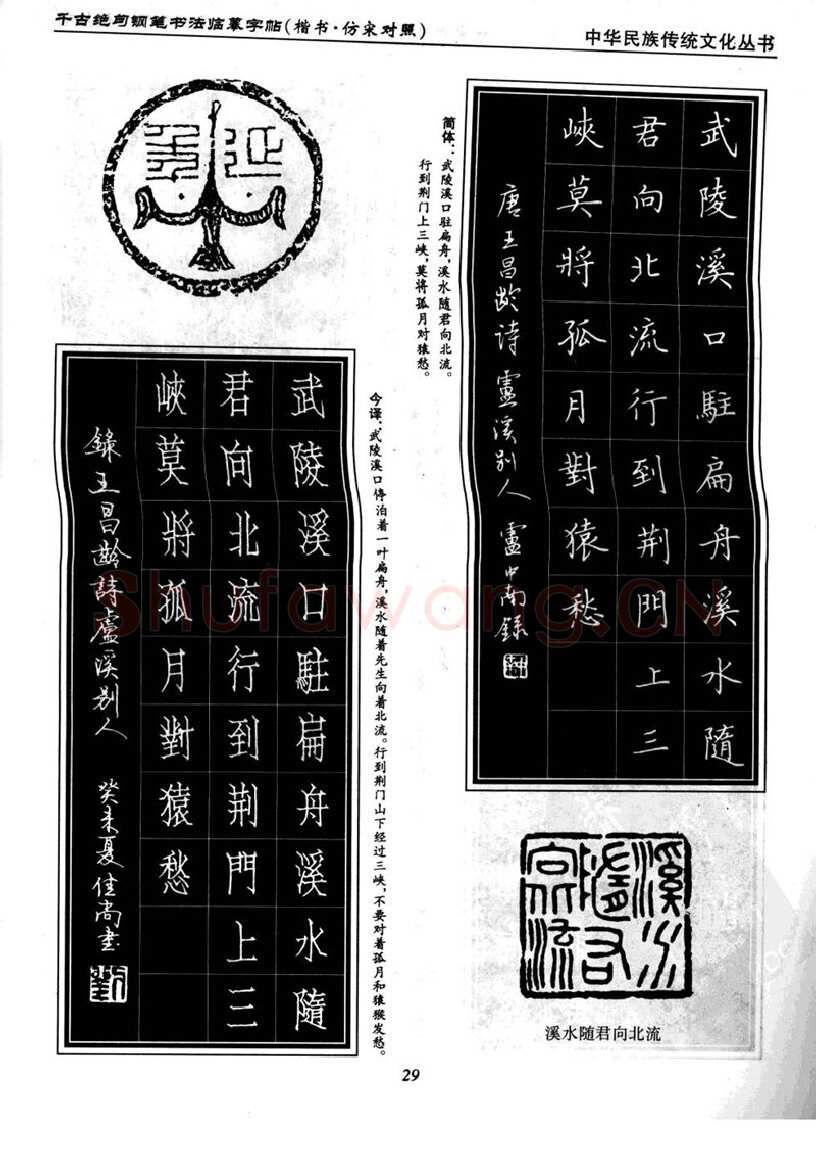 千古绝句钢笔书法临摹字帖(楷书·仿宋对照)
中华民族传统文化丛书
武陵溪口駐扁舟溪水隨
君向北流行到荆門上三
峽莫將孤月對猿愁
唐王昌龄诗盧溪别人 盧中南録
简体:武陵溪口驻扁舟,溪水随君向北流。
行到荆门上三峡,莫将孤月对猿愁。
今译:武陵溪口停泊着一叶扁舟,溪水随着先生向着北流。行到荆门山下经过三峡,不要对着孤月和猿猴发愁。
武陵溪口駐扁舟溪水隨
君向北流行到荆門上三
峽莫將孤月對猿愁
録王昌齡詩盧溪别人 癸未夏佳尚書
溪水随君向北流
29
Shufawang.CN